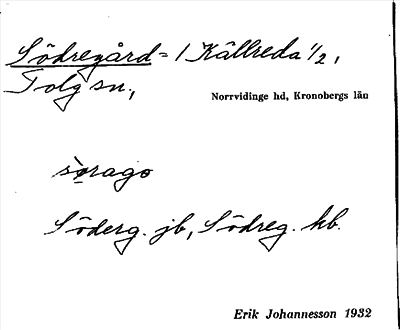 Södregård = 1 Källreda 1/2,
Tolg sn.,
Norrvidinge hd, Kronobergs län
sørago
Söderg. jb, Södreg. kb.
Erik Johannesson 1932